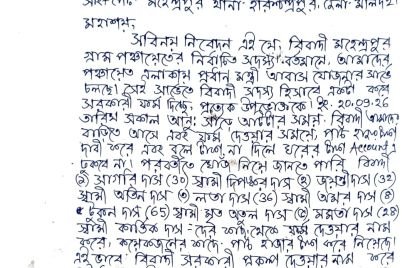 সাং+পোঃ মহেন্দ্রপুর থানা হরিশ্চন্দ্রপুর, জেলা মালদহ।
মহাশয়,
সবিনয় নিবেদন এই যে, বিবাদী মহেন্দ্রপুর
গ্রাম পঞ্চায়েতের নির্বাচিত সদস্যা। বর্তমানে, আমাদের
পঞ্চায়েত এলাকায় প্রধান মন্ত্রী আবাস যোজনার কাজ
চলছে। সেই বিবাদী সদস্য হিসাবে একটা করে
সরকারী ফর্ম দিচ্ছে, প্রত্যেক উপভোক্তাকে। ইং 20.09.26
তারিখ সকাল আটটার সময়, বিবাদী আমাদের
বাড়িতে আসে এবং ফর্ম দেওয়ার সময়ে, পাঁচ হাজার টাকা
দাবী করে এবং বলে টাকা না দিলে ঘরের টাকা Account এ
ঢুকবে না। পরবর্তীতে খোঁজ নিয়ে জানতে পারি বিবাদী
① সাগরি দাস (30) স্বামী দিপঙ্কর দাস ② জয়ন্তী দাস (32)
স্বামী অতিন দাস ③ লতা দাস (36) স্বামী অমর দাস ④
টুকুন দাস (65) স্বামী মৃত অতুল দাস ⑤ মমতা দাস (28)
স্বামী কার্তিক দাস - দের কাছ থেকে ফর্ম দেওয়ার নাম
করে, কাছে পাঁচ হাজার টাকা করে নিয়েছে।
এই ভাবে বিবাদী সরকারী প্রকল্প দেওয়ার নাম করে